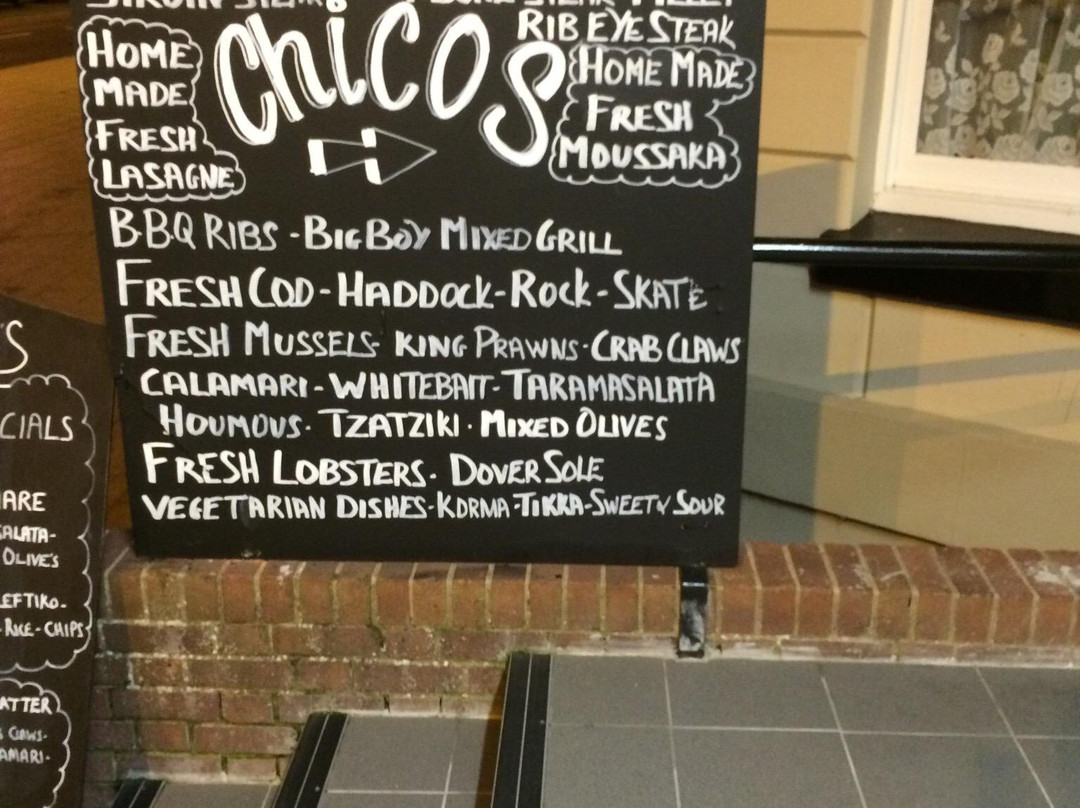 SIRLOIN STEAK
T BONE STEAK FILLET
CHiCOS
RIB EYE STEAK
HOME
MADE
FRESH
LASAGNE
HOME MADE
FRESH
MOUSSAKA
B·B·Q RIBS - BIG BOY MIXED GRILL
FRESH COD - HADDOCK - ROCK - SKATE
FRESH MUSSELS · KING PRAWNS · CRAB CLAWS
CALAMARI - WHITEBAIT - TARAMASALATA
HOUMOUS · TZATZIKI · MIXED OLIVES
FRESH LOBSTERS · DOVER SOLE
VEGETARIAN DISHES - KORMA - TIKKA - SWEET N SOUR
'S
CIALS
ARE
ALATA-
OLIVE'S
LEFTIKO-
- RICE - CHIPS
ATTER
CLAWS-
AMARI-